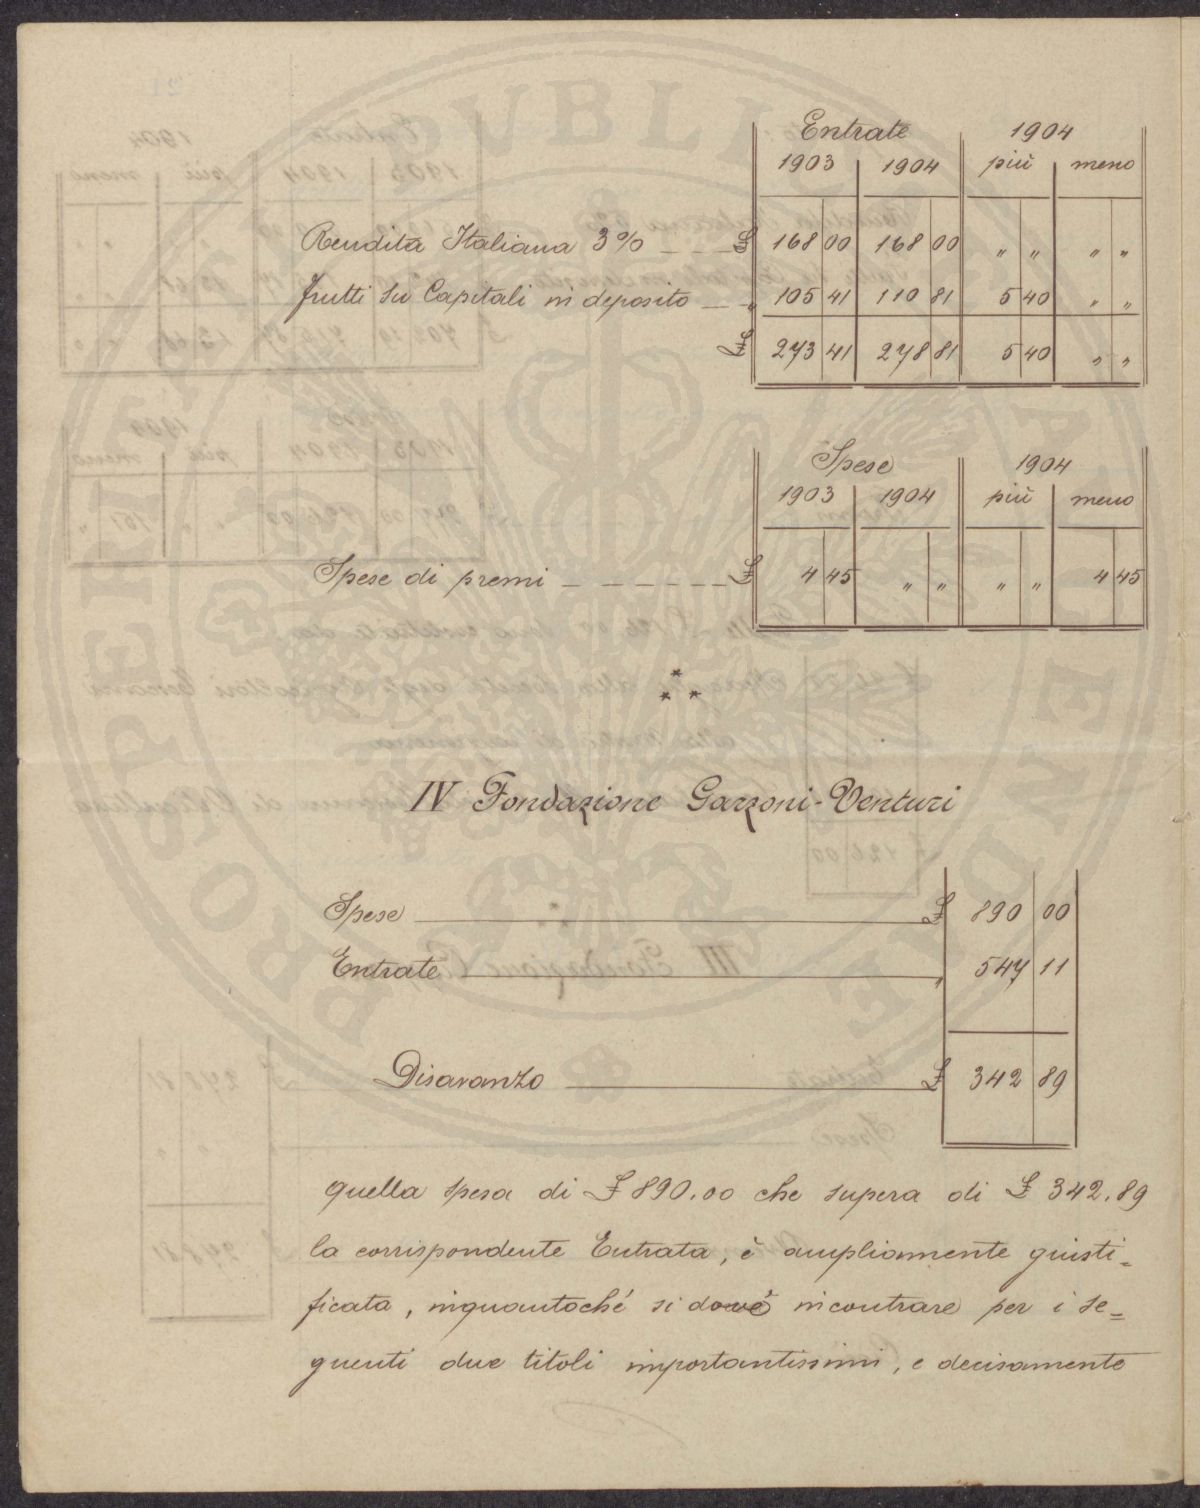 Entrate 1904
1903 1904 più meno
Rendita Italiana 3% £ 168 00 168 00 " " " "
Frutti su Capitali in deposito " 105 41 110 81 5 40 " "
£ 273 41 278 81 5 40 " "
Spese 1904
1903 1904 più meno
Spese di premi £ 4 45 " " " " 4 45
IV Fondazione Garzoni-Venturi
Spese £ 890 00
Entrate " 547 11
Disavanzo £ 342 89
quella spesa di £ 890.00 che supera di £ 342.89
la corrispondente Entrata, è ampliamente giusti=
ficata, inquantoché si dovè incontrare per i se=
guenti due titoli importantissimi, e decisamente